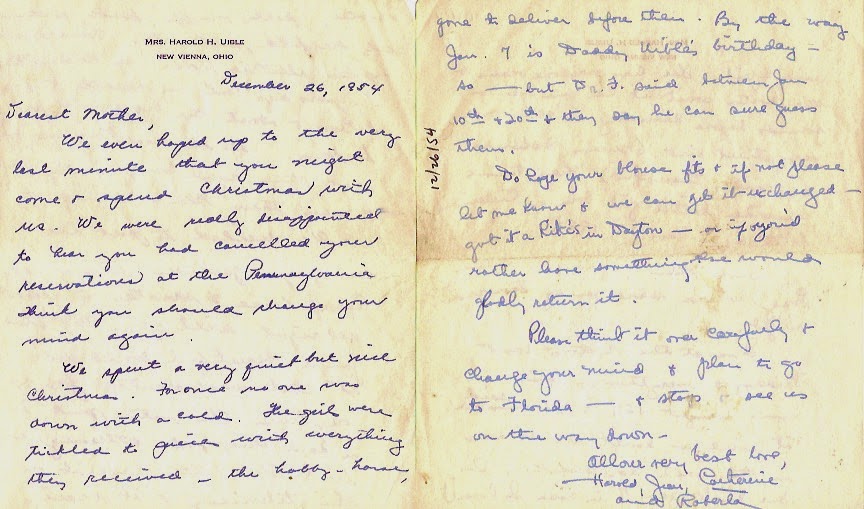 MRS. HAROLD H. UIBLE
NEW VIENNA, OHIO
December 26, 1954
Dearest Mother,
We even hoped up to the very
last minute that you might
come + spend Christmas with
us. We were really disappointed
to hear you had cancelled your
reservations at the Pennsylvania
think you should change your
mind again.
We spent a very quiet but nice
Christmas. For once no one was
down with a cold. The girls were
tickled to pieces with everything
they received – the hobby-horse,
gone to deliver before then. By the way
Jan. 7 is Daddy Uible's birthday –
so — but Dr. F. said between Jan
10th + 20th + they say he can sure guess
them.
12/26/54
Do hope your blouse fits + if not please
let me know + we can get it exchanged –
got it a Rike's in Dayton — or if you'd
rather have something else would
gladly return it.
Please think it over carefully +
change your mind + plan to go
to Florida — + stop + see us
on the way down –
All our very best love,
Harold, Jean, Catherine
and Roberta